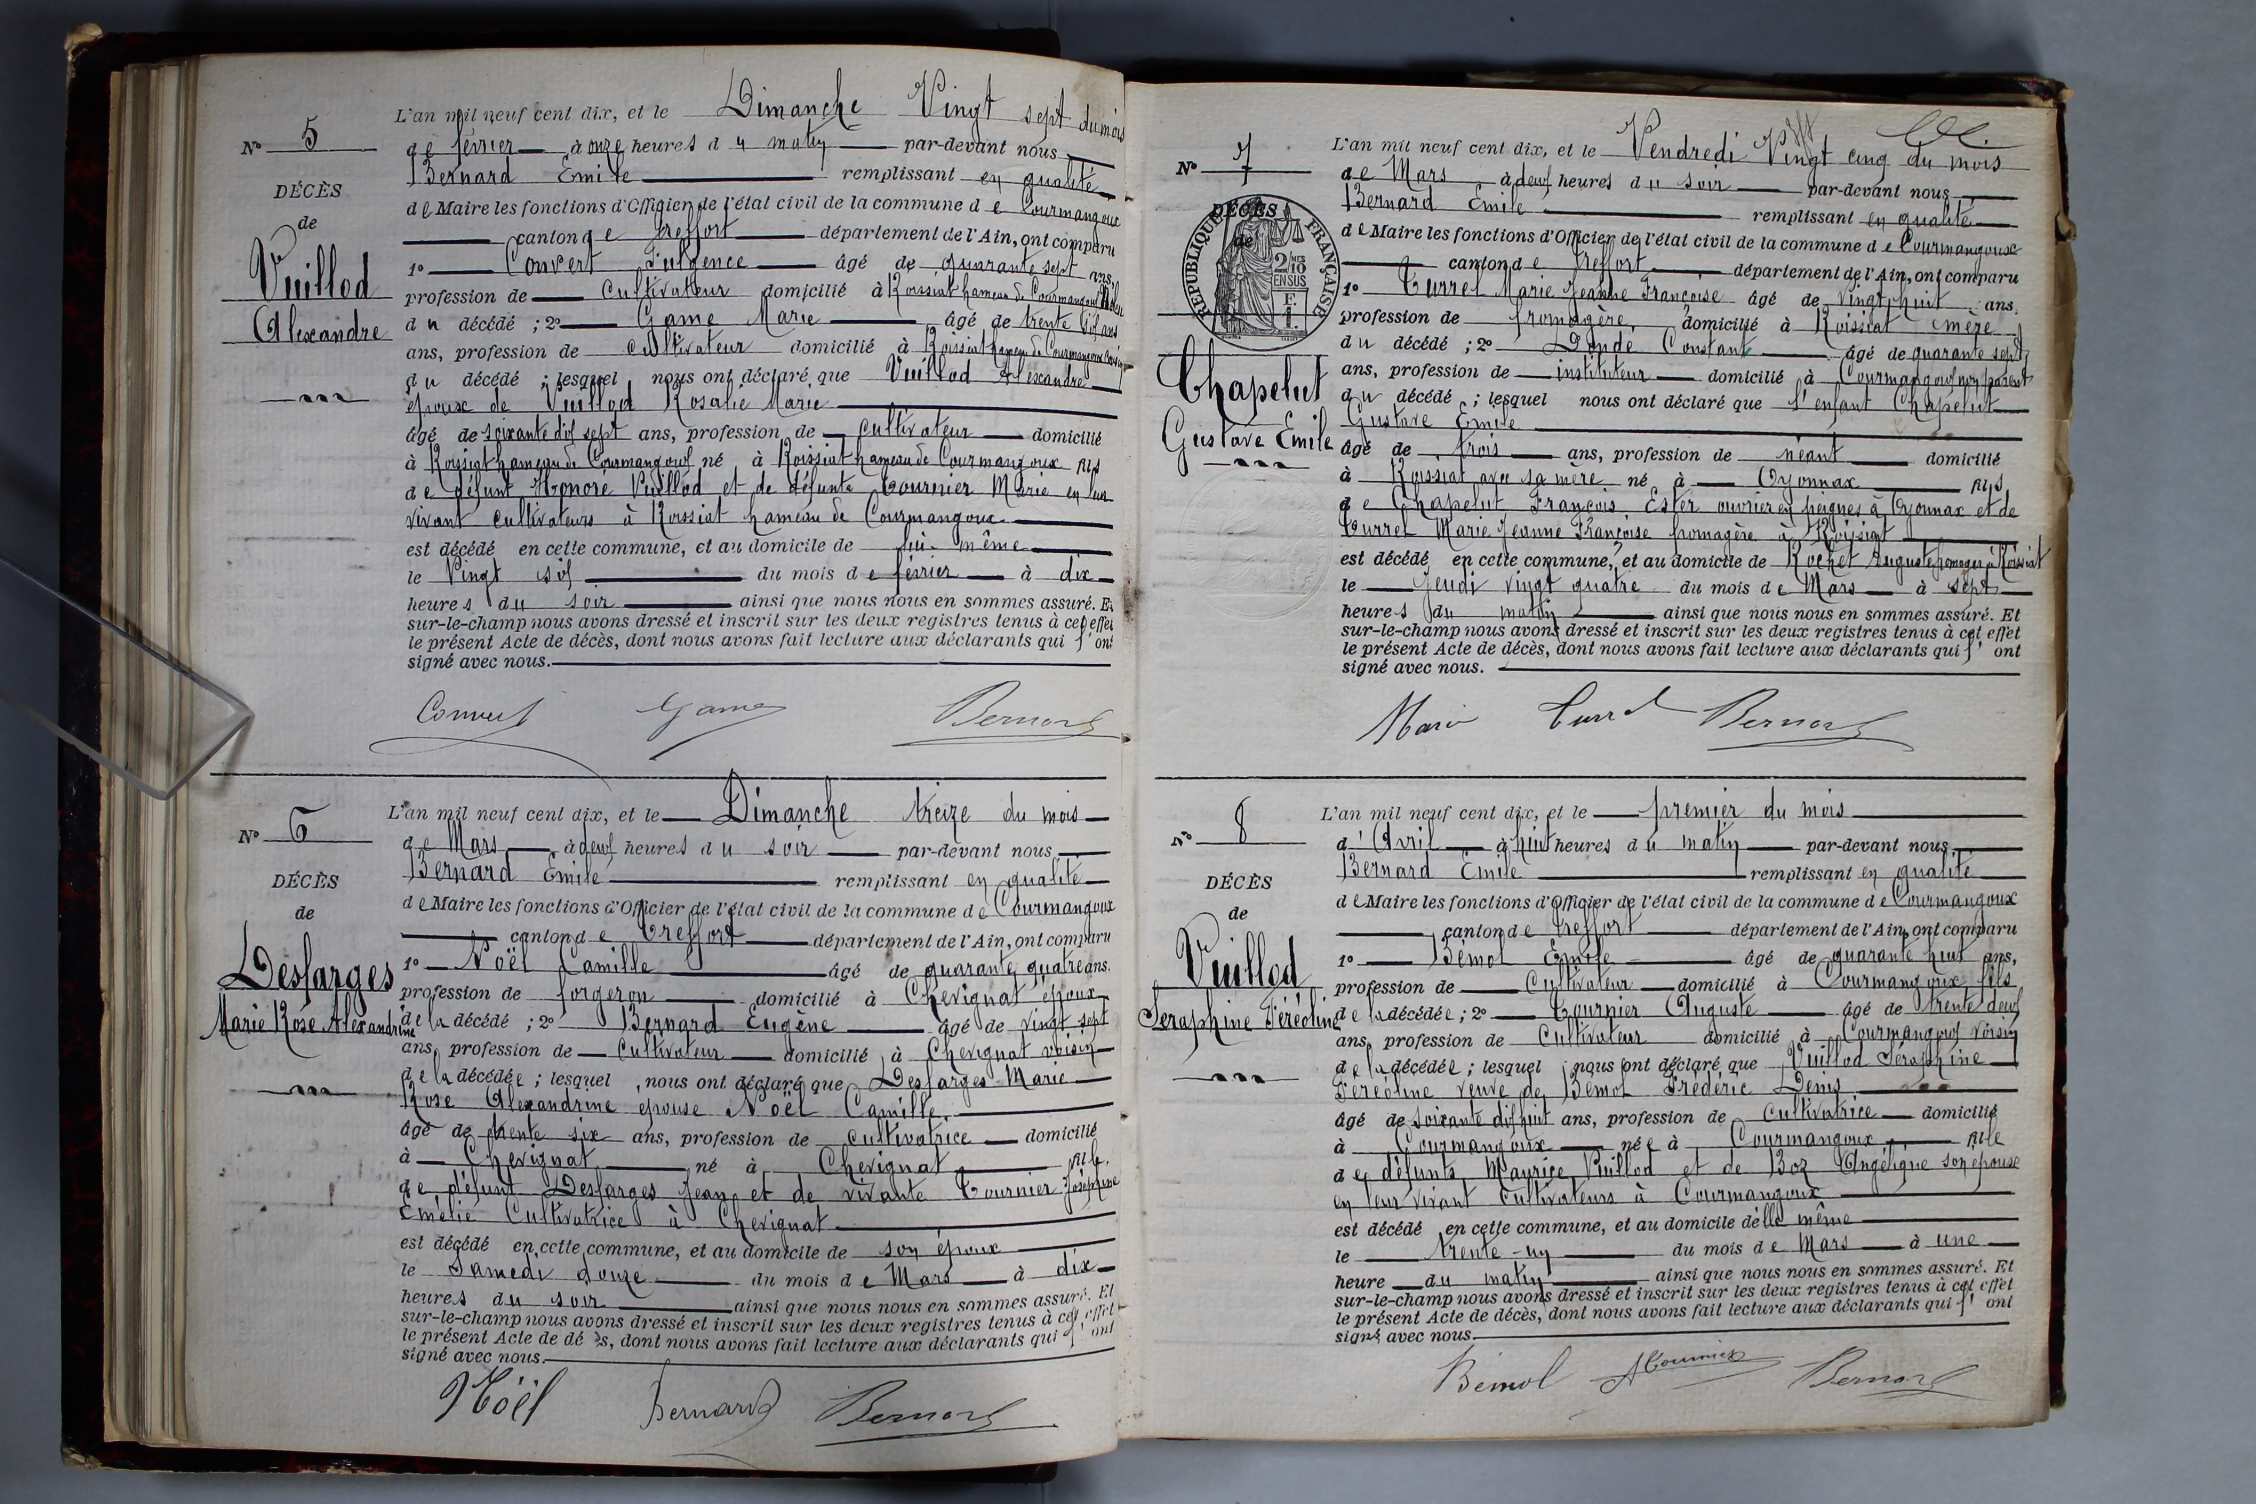 N° 5
DÉCÈS
de
Vuillod
Alexandre
L'an mil neuf cent dix, et le Dimanche Vingt sept du mois
de février à onze heures du matin par-devant nous
Bernard Emile remplissant en qualité
de Maire les fonctions d'Officier de l'état civil de la commune de Courmangoux
canton de Treffort département de l'Ain, ont comparu
1° Convert Fulgence âgé de quarante sept ans,
profession de Cultivateur domicilié à Roissiat hameau de Courmangoux
du décédé ; 2° Game Marie âgé de trente six ans
ans, profession de cultivateur domicilié à Roissiat hameau de Courmangoux voisin
du décédé ; lesquel nous ont déclaré que Vuillod Alexandre
époux de Vuillod Rosalie Marie
âgé de soixante dix sept ans, profession de cultivateur domicilié
à Roissiat hameau de Courmangoux né à Roissiat hameau de Courmangoux fils
de défunt Honoré Vuillod et de défunte Tournier Marie en leur
vivant cultivateurs à Roissiat hameau de Courmangoux
est décédé en cette commune, et au domicile de lui-même
le Vingt six du mois de février à dix
heures du soir ainsi que nous nous en sommes assuré. Et
sur-le-champ nous avons dressé et inscrit sur les deux registres tenus à cet effet
le présent Acte de décès, dont nous avons fait lecture aux déclarants qui l'ont
signé avec nous.
Convert Game Bernard
N° 6
DÉCÈS
de
Desfarges
Marie Rose Alexandrine
L'an mil neuf cent dix, et le Dimanche treize du mois
de Mars à deux heures du soir par-devant nous
Bernard Emile remplissant en qualité
de Maire les fonctions d'Officier de l'état civil de la commune de Courmangoux
canton de Treffort département de l'Ain, ont comparu
1° Noël Camille âgé de quarante quatre ans.
profession de forgeron domicilié à Chevignat époux
de la décédé ; 2° Bernard Eugène âgé de vingt sept
ans, profession de Cultivateur domicilié à Chevignat voisin
de la décédée ; lesquel nous ont déclaré que Desfarges Marie
Rose Alexandrine épouse Noël Camille
âgé de trente six ans, profession de cultivatrice domicilié
à Chevignat né à Chevignat fille
de défunt Desfarges Jean et de vivante Tournier Joséphine
Emélie Cultivatrice à Chevignat
est décédé en cette commune, et au domicile de son époux
le Samedi douze du mois de Mars à dix
heures du soir ainsi que nous nous en sommes assuré. Et
sur-le-champ nous avons dressé et inscrit sur les deux registres tenus à cet effet
le présent Acte de dé s, dont nous avons fait lecture aux déclarants qui l'ont
signé avec nous.
Noël Bernard Bernard
N° 7
DÉCÈS
de
RÉPUBLIQUE FRANÇAISE
2/10
EN SUS
Chapelut
Gustave Emile
L'an mil neuf cent dix, et le Vendredi Vingt cinq du mois
de Mars à deux heures du soir par-devant nous
Bernard Emile remplissant en qualité
de Maire les fonctions d'Officier de l'état civil de la commune de Courmangoux
canton de Treffort département de l'Ain, ont comparu
1° Turrel Marie Jeanne Françoise âgé de vingt huit ans.
profession de fromagère domicilié à Roissiat mère
du décédé ; 2° Constant âgé de quarante sept
ans, profession de instituteur domicilié à Courmangoux non parent
du décédé ; lesquel nous ont déclaré que l'enfant Chapelut
Gustave Emile
âgé de trois ans, profession de néant domicilié
à Roissiat avec sa mère né à Oyonnax fils
de Chapelut François Ester ouvrier en peignes à Oyonnax et de
Turrel Marie Jeanne Françoise fromagère à Roissiat
est décédé en cette commune, et au domicile de Rochet Auguste fromager à Roissiat
le Jeudi vingt quatre du mois de Mars à sept
heures du matin ainsi que nous nous en sommes assuré. Et
sur-le-champ nous avons dressé et inscrit sur les deux registres tenus à cet effet
le présent Acte de décès, dont nous avons fait lecture aux déclarants qui l'ont
signé avec nous.
Marie Turrel Bernard
N° 8
DÉCÈS
de
Vuillod
Seraphine Féréoline
L'an mil neuf cent dix, et le premier du mois
d'Avril à huit heures du matin par-devant nous
Bernard Emile remplissant en qualité
de Maire les fonctions d'Officier de l'état civil de la commune de Courmangoux
canton de Treffort département de l'Ain, ont comparu
1° Bémol Emile âgé de quarante huit ans,
profession de Cultivateur domicilié à Courmangoux fils
de la décédée ; 2° Tournier Auguste âgé de trente deux
ans, profession de Cultivateur domicilié à Courmangoux voisin
de la décédée ; lesquel nous ont déclaré que Vuillod Séraphine
Féréoline veuve de Bémol Frédéric Denis
âgé de soixante dix huit ans, profession de cultivatrice domicilié
à Courmangoux née à Courmangoux fille
de défunts Maurice Vuillod et de Boz Angélique son épouse
en leur vivant cultivateurs à Courmangoux
est décédé en cette commune, et au domicile d'elle même
le trente-un du mois de Mars à une
heure du matin ainsi que nous nous en sommes assuré. Et
sur-le-champ nous avons dressé et inscrit sur les deux registres tenus à cet effet
le présent Acte de décès, dont nous avons fait lecture aux déclarants qui l'ont
signé avec nous.
Bémol A Tournier Bernard